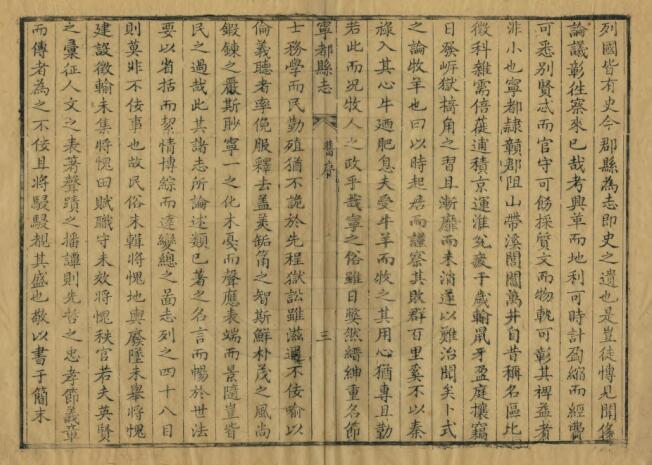 列國皆有史今郡縣為志即史之遺也是豈徒慱見聞侈
論議彰徃察來已哉考興革而地利可時計盈縮而經費
可悉別賢忒而官守可飭採質文而物軌可彰其裨益者
非小也寧都隷贛郡阻山帶溪閭閻萬井自昔稱名區比
徵科雜需倍蓰逋積京運淮兊疲于歲輸鼠牙盈庭攘竊
日發岍獄掎角之習且漸靡而来消遂以難治聞矣卜式
之論牧羊也曰以時起居而謹察其敗群百里奚不以秦
祿入其心牛廼肥息夫受牛羊而牧之其用心猶專且勤
若此而況牧人之政乎哉寧之俗雖日獘然縉紳重名節
寧都縣志 舊序 三
士務學而民勤殖猶不詭於先程獄訟雖滋不佞喻以
倫義聽者率俛服釋去盖美鈲筩之智斯鮮朴茂之風尚
鍛鍊之嚴斯耿寧一之化木戞而聲應表端而景隨豈皆
民之過哉此其諸志所論述類已著之名言而暢於世法
要以省括而絜情博綜而達變總之畐志列之四十八目
則莫非不佞事也故民俗未輯將愧地輿廢墜未舉將愧
建設徵輸未集將愧田賦職守未效將愧秩官若夫英賢
之彚征人文之表著聲蹟之播譚則先哲之忠孝節義章
而傳者為之不佞且將駸駸覩其盛也敬以書于簡末